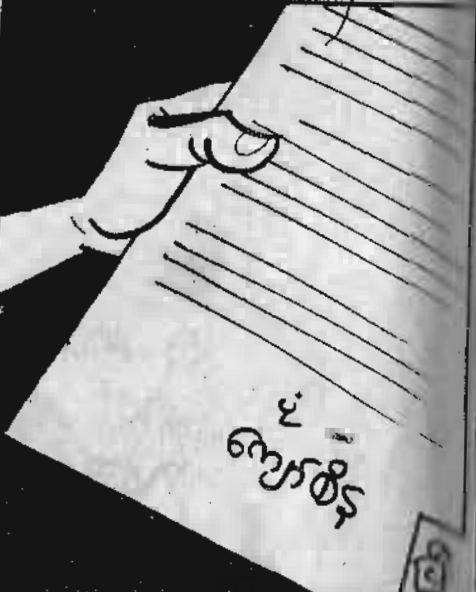 ပုံ
ကျော်စိန်